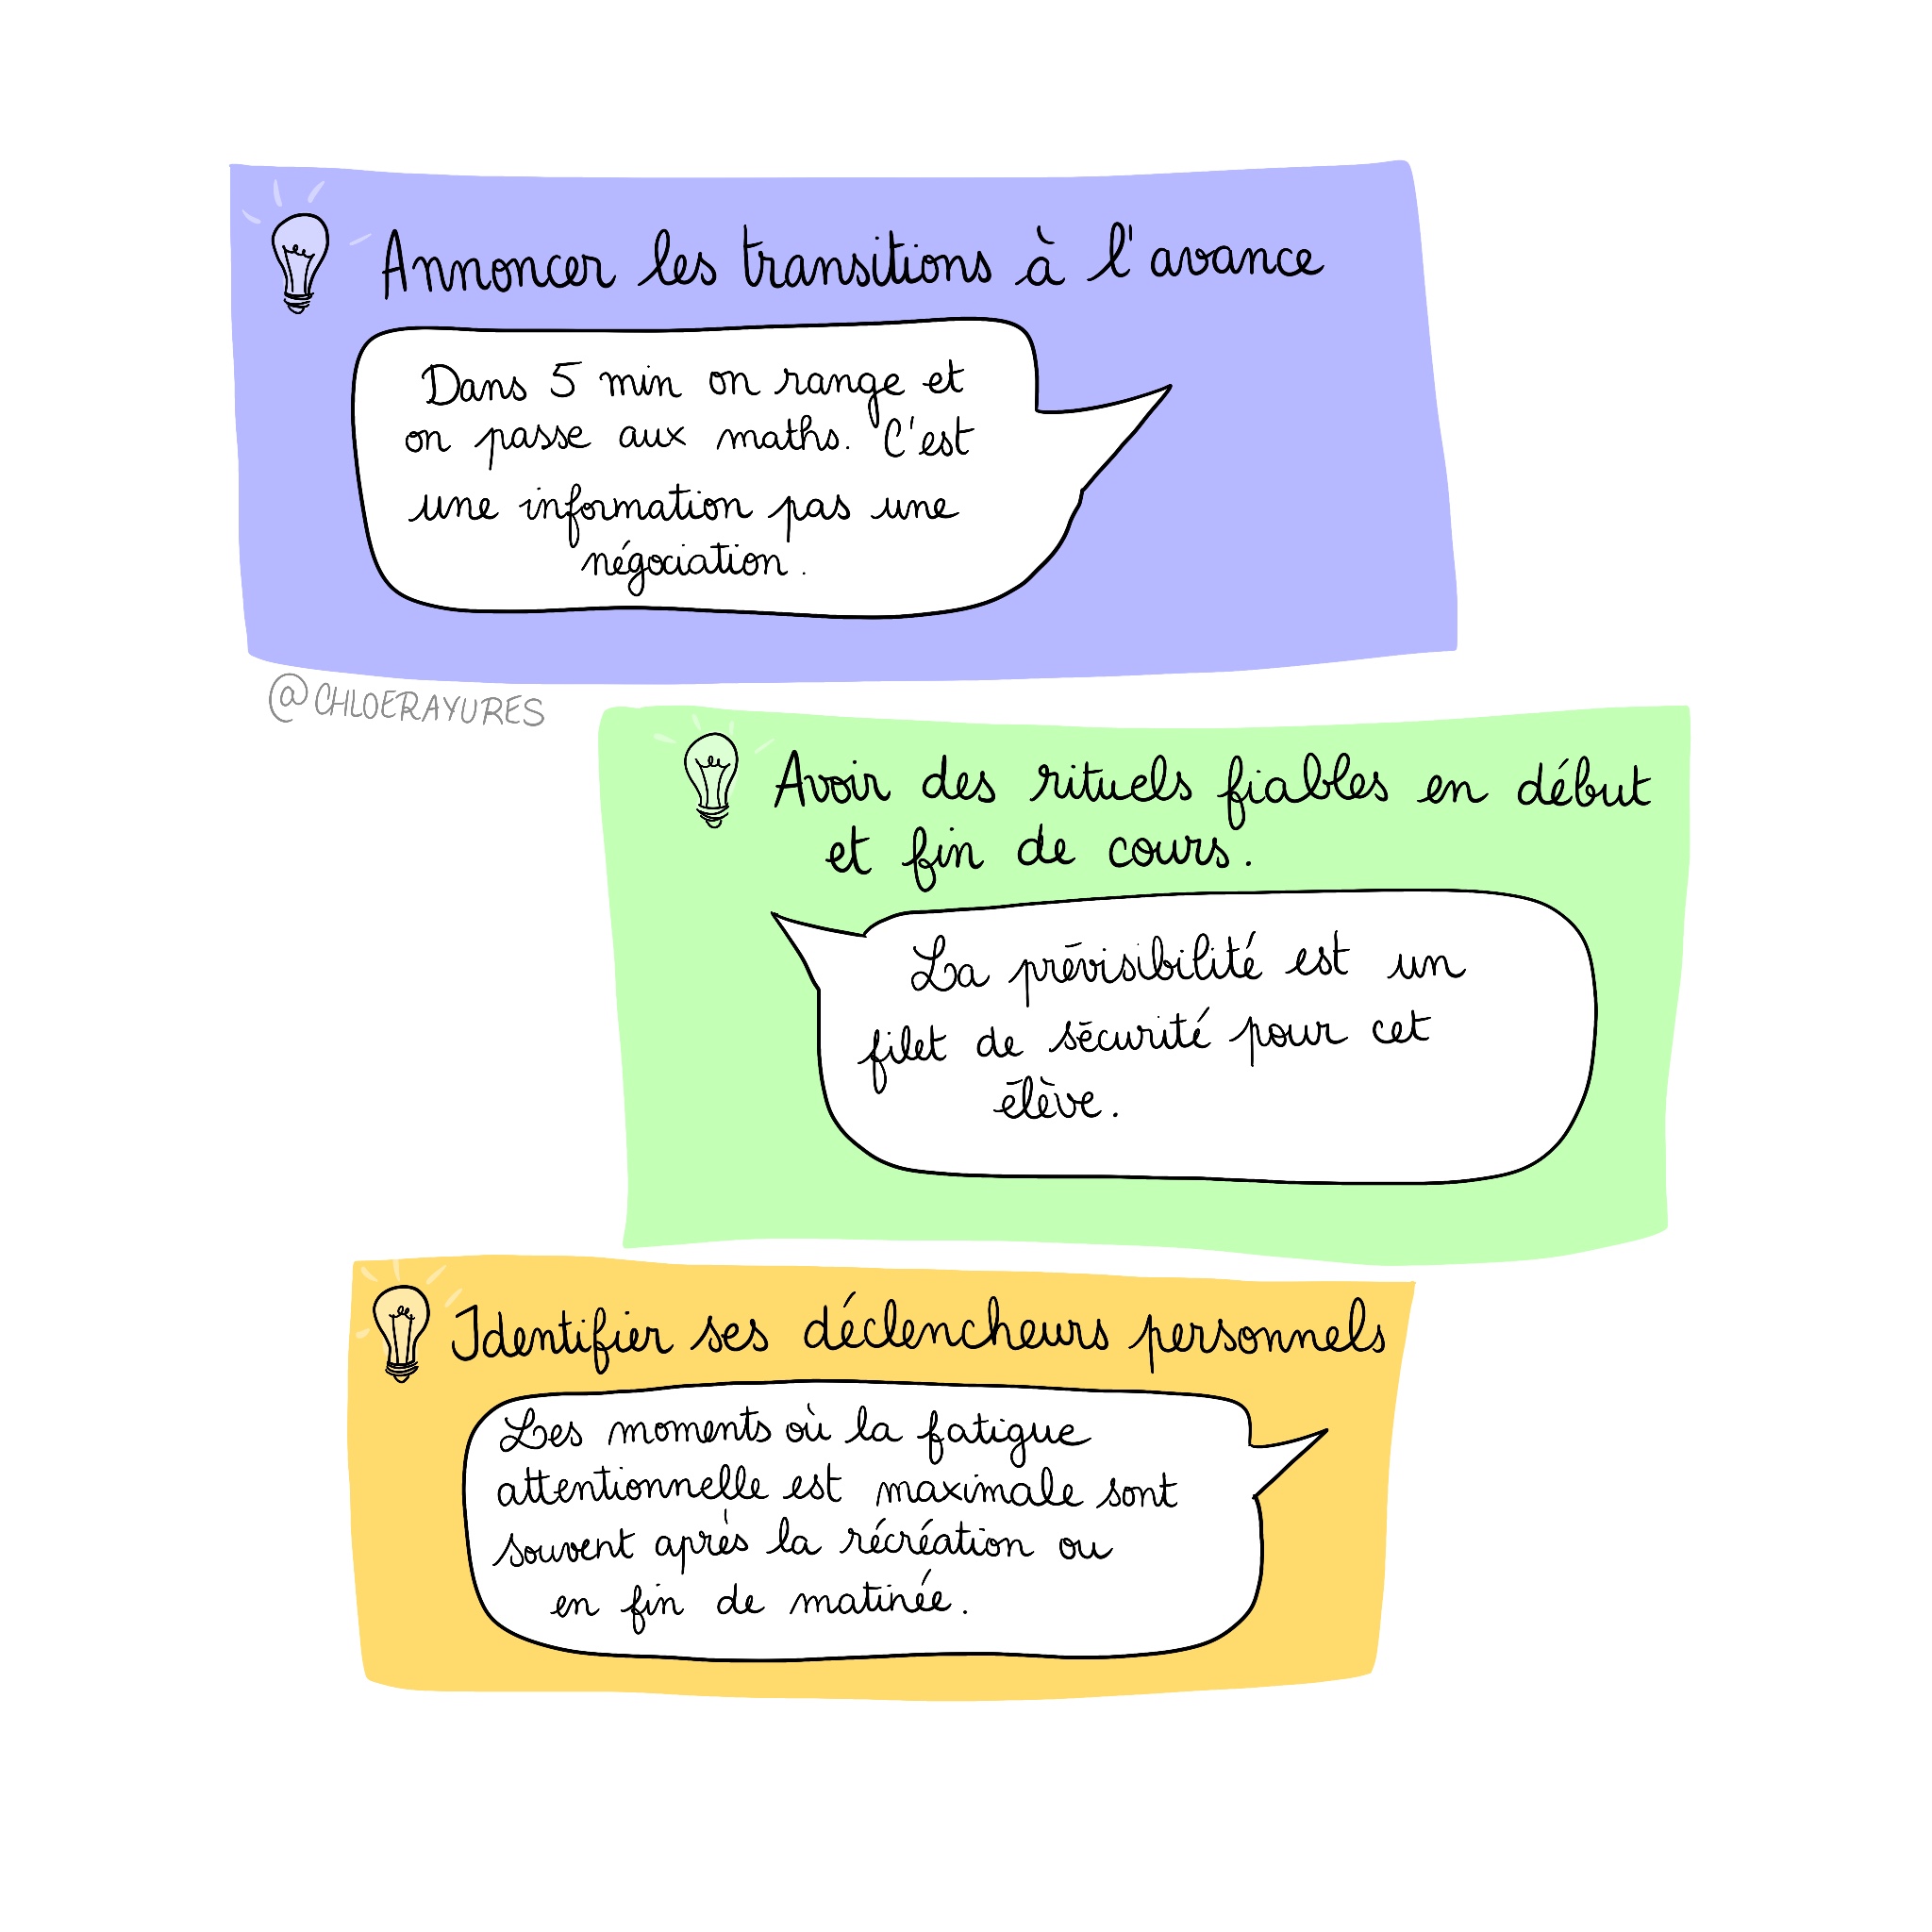 Annoncer les transitions à l'avance
Dans 5 min on range et
on passe aux maths. C'est
une information pas une
négociation.
@CHLOERAYURES
Avoir des rituels fiables en début
et fin de cours.
La prévisibilité est un
filet de sécurité pour cet
élève.
Identifier ses déclencheurs personnels
Les moments où la fatigue
attentionnelle est maximale sont
souvent après la récréation ou
en fin de matinée.